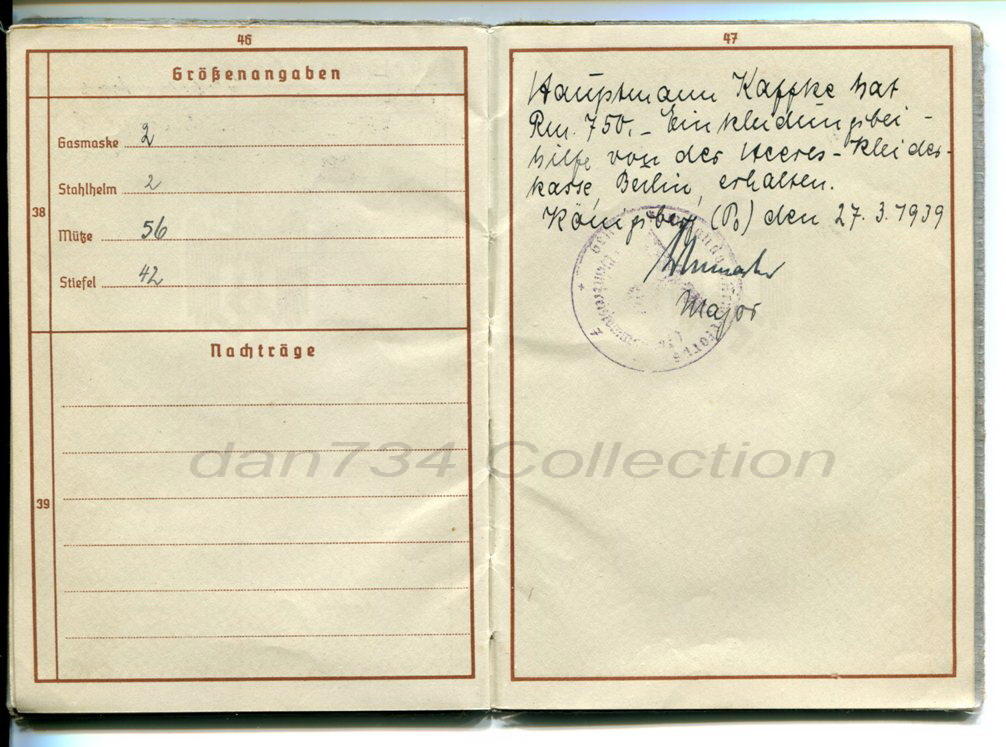 46
Größenangaben
Gasmaske 2
Stahlhelm 2
38
Mütze 56
Stiefel 42
Nachträge
39
47
Hauptmann Kaffke hat
Rm. 750.- Einkleidungsbei-
hilfe von der Heeres-Kleider-
kasse, Berlin, erhalten.
Königsberg (Pr) den 27.3.1939
Major
dan734 Collection